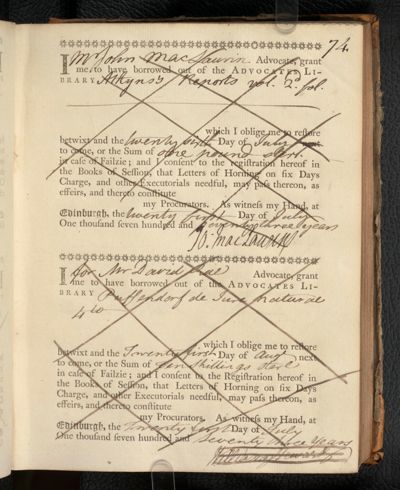 74
I Mr John MacLaurin Advocate, grant
me to have borrowed out of the ADVOCATES LI-
BRARY Atkyns's Reports vol. 2d fol.
which I oblige me to restore
betwixt and the twenty first Day of July next
to come, or the Sum of one pound Ster.
in case of Failzie; and I consent to the Registration hereof in
the Books of Session, that Letters of Horning on six Days
Charge, and other Executorials needful, may pass thereon, as
effeirs, and thereto constitute
my Procurators. As witness my Hand, at
Edinburgh, the twenty first Day of July
One thousand seven hundred and seventy three years
Jo: MacLaurin
I for Mr David Rae Advocate, grant
me to have borrowed out of the ADVOCATES LI-
BRARY Puffendorf de Jure naturae
4to
which I oblige me to restore
betwixt and the Twenty first Day of Augt next
to come, or the Sum of Ten Shillings Ster
in case of Failzie; and I consent to the Registration hereof in
the Books of Session, that Letters of Horning on six Days
Charge, and other Executorials needful, may pass thereon, as
effeirs, and thereto constitute
my Procurators. As witness my Hand, at
Edinburgh, the Twenty first Day of July
One thousand seven hundred and Seventy three Years
William Stewart